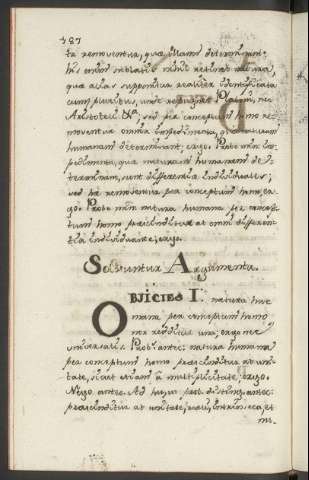 487
ta removentur, quæ illam determinant:
his enim sublatis nihil reliqui natura,
quæ alias supponitur realiter identificata
cum pluribus, unde nec Platoni, nec
Aristoteli &ª; sed per conceptum homo re
moventur omnia impedimenta, quæ naturam
humanam determinant; ergo. Probo min. im
pedimenta, quæ naturam humanam de
terminant, sunt differentiæ individuales;
sed hæ removentur per conceptum homo, er
go. Probo min. natura humana per concep
tum homo præscinditur ab omni differen
tia individuante; ergo.
Solvuntur Argumenta.
OBJICIES I. natura hu
mana per conceptum homo
non redditur una; ergo nec
universalis. Prob. antec. natura humana
per conceptum homo præscinditur ab uni
tate, sicut etiam a multiplicitate; ergo.
Nego antec. Ad hujus prob. disting. antec.
præscinditur ab unitate,
ne.